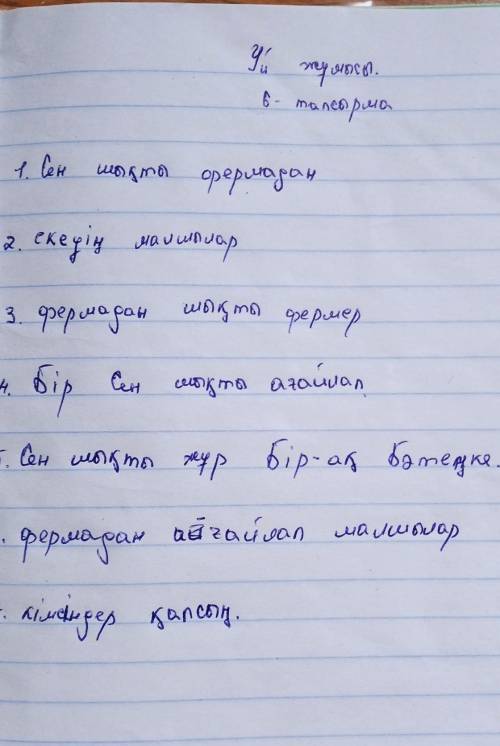 Үй жұмысы.
6- тапсырма
1. Сен шықты фермадан
2. екеуің малшылар
3. фермадан шықты фермер
4. Бір Сен шықты ағайлап
. Сен шықты жүр Бір-ақ Бәтеңке.
. фермадан айғайлап малшылар
. кімсіңдер қапсың.